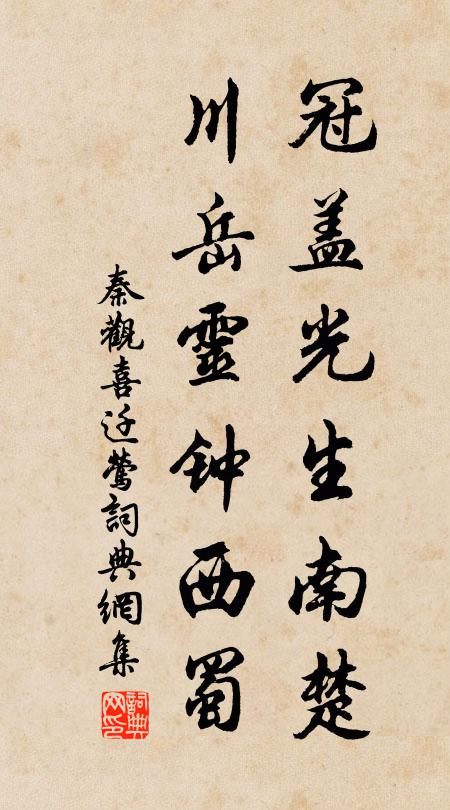 冠盖光生南楚
川岳靈钟西蜀
秦觀喜迁鶯詞典網集
詞典网印